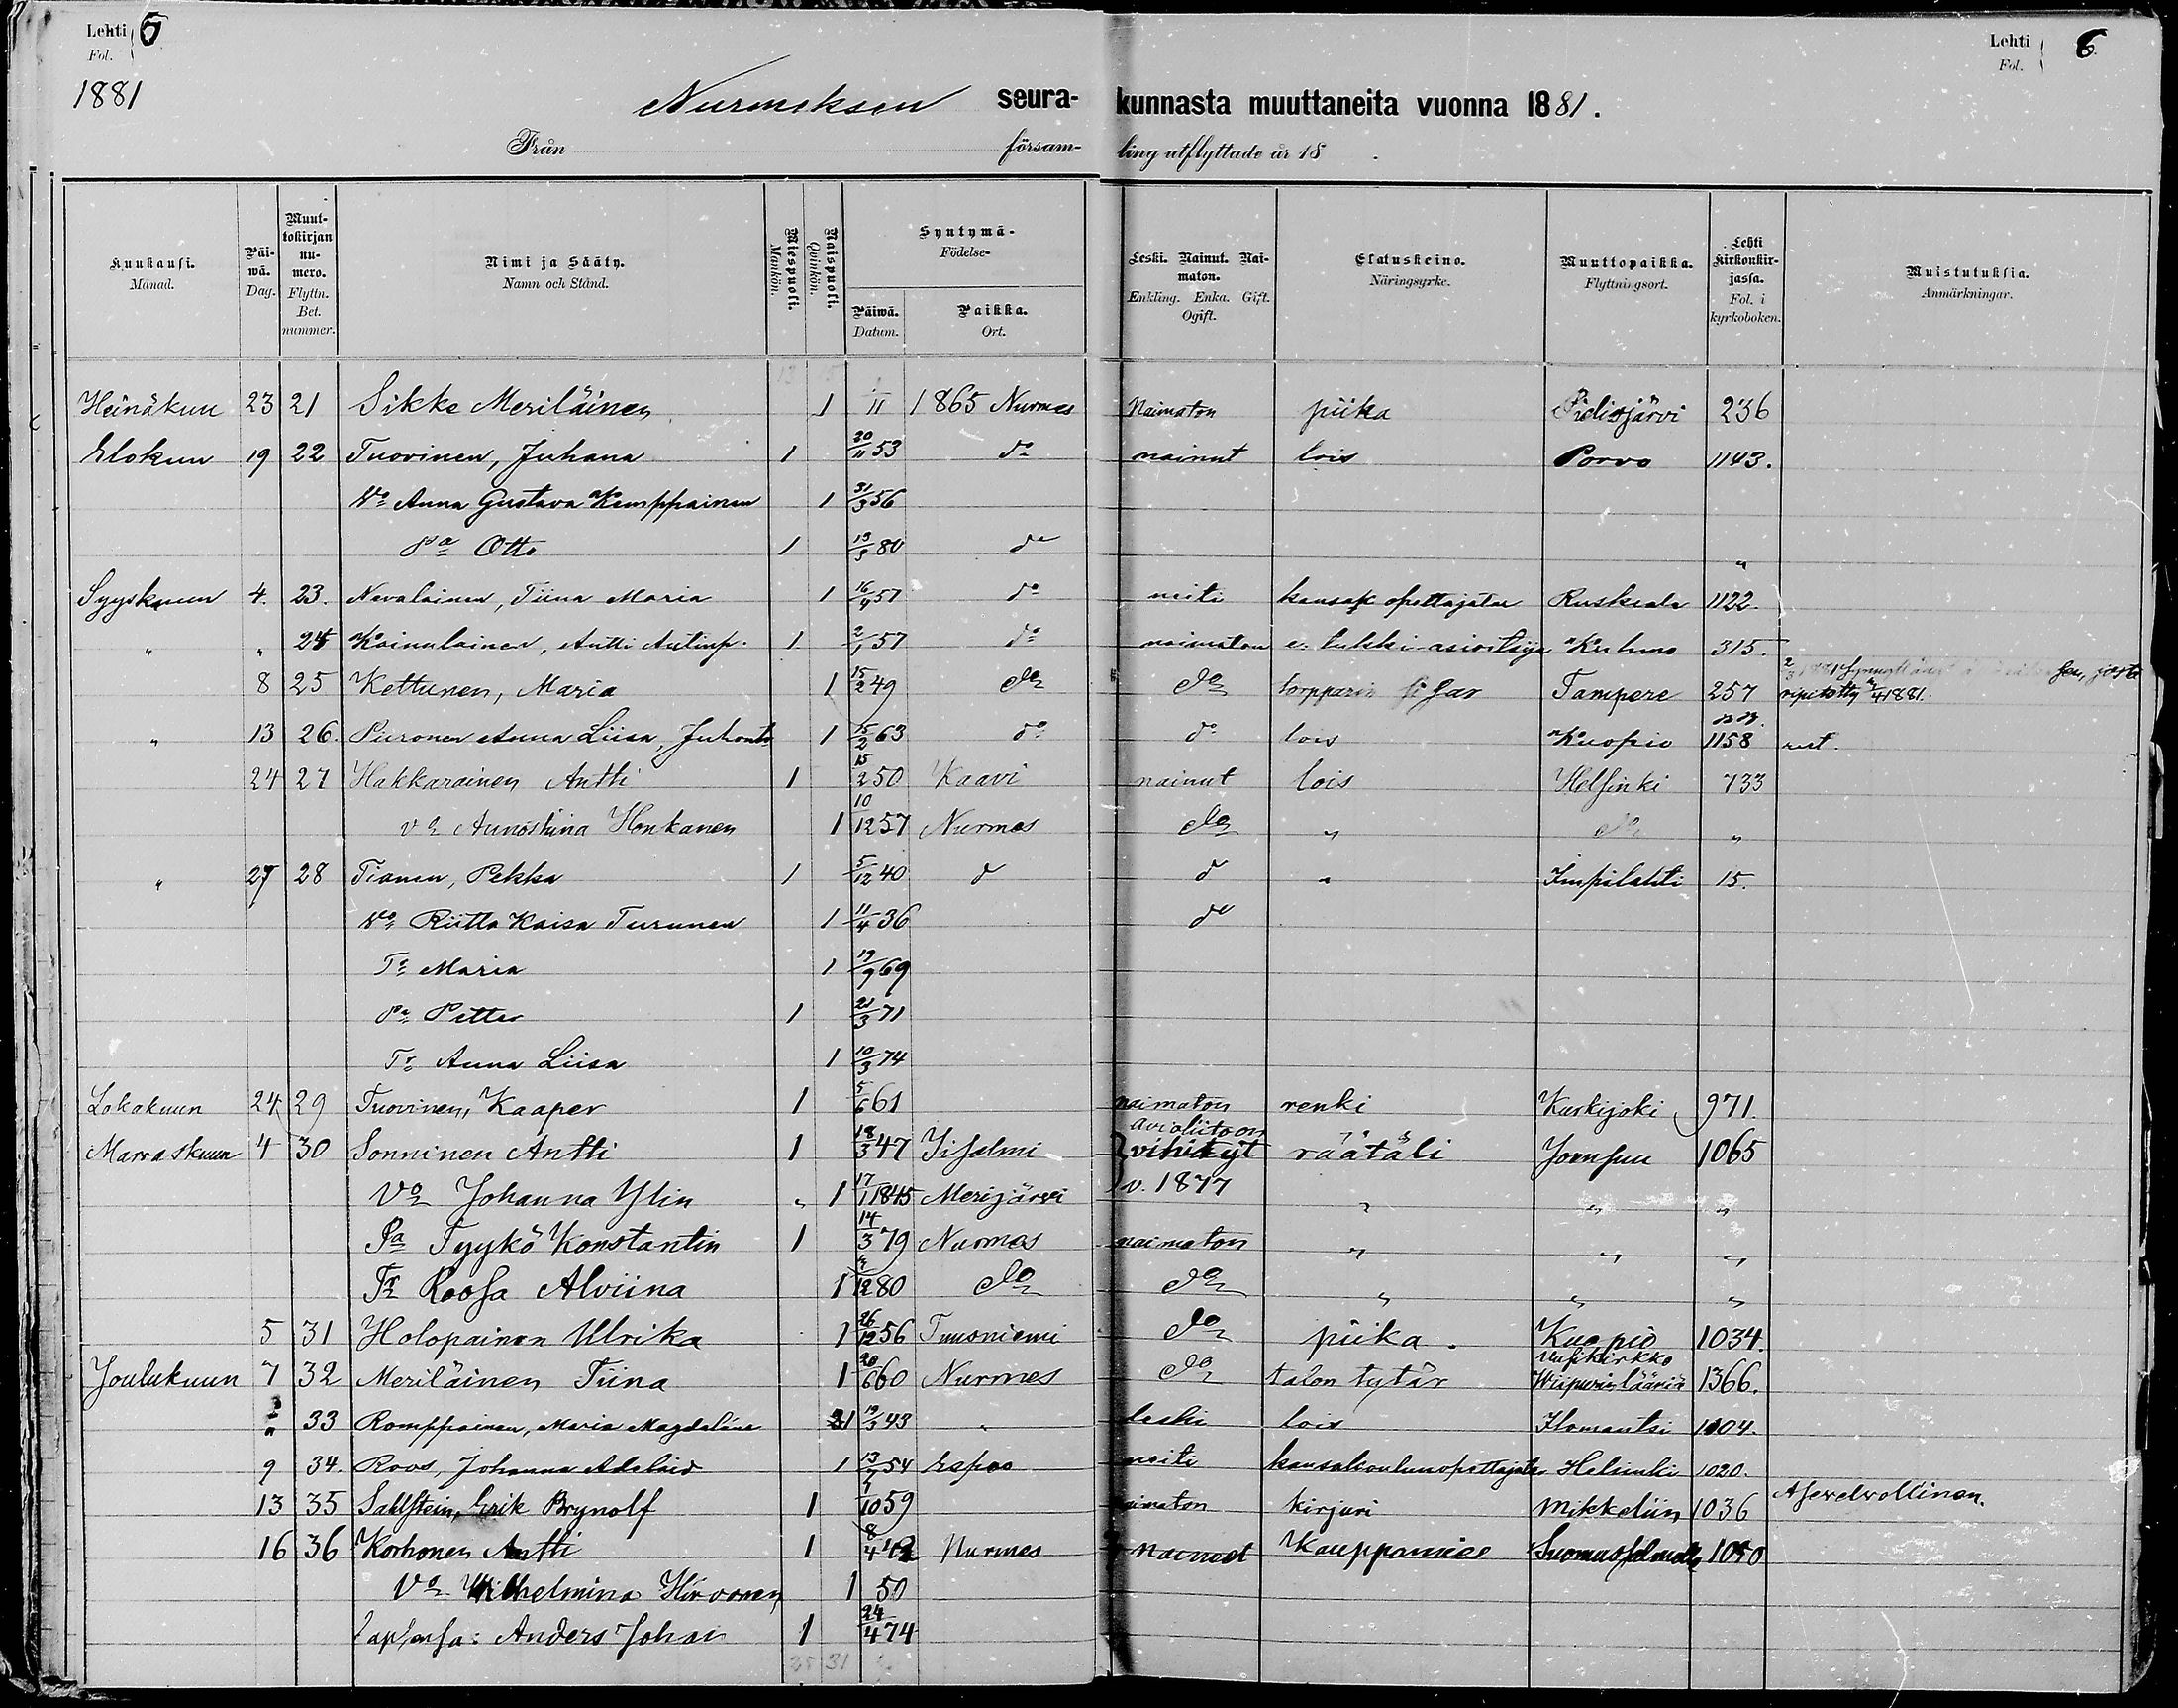 Lehti Fol. 5
Lehti Fol. 6.
1881
Nurmeksen seura- kunnasta muuttaneita vuonna 1881.
Från försam- ling utflyttade år 18 .
Kuukausi. Månad.
Päiwä. Dag.
Muuttokirjan numero. Flyttn. Bet. nummer.
Nimi ja Sääty. Namn och Stånd.
Miespuoli. Mankön.
Naispuoli. Qvinkön.
Syntymä- Födelse-
Päiwä. Datum.
Paikka. Ort.
Leski. Nainut. Naimaton. Enkling. Enka. Gift. Ogift.
Elatuskeino. Näringsyrke.
Muuttopaikka. Flyttningsort.
Lehti Kirkonkirjassa. Fol. i kyrkoboken.
Muistutuksia. Anmärkningar.
Heinäkuu 23 21 Sikke Meriläinen 1 /11 1865 Nurmes Naimaton piika Pidisjärvi 236
Elokuu 19 22 Tuovinen, Juhana 1 20/11 53 do nainut lois Porvo 1143.
Vo Anna Gustava Kemppainen 1 31/3 56
Pa Otto 1 19/3 80 do "
Syyskuun 4. 23. Nevalainen, Tiina Maria 1 16/4 57 do neiti kansak opettajatar Ruskeala 1122.
" " 24 Kainulainen, Antti Antinp. 1 2/1 57 do naimaton e. lukkari-asioitsija Kuhmo 315.
8 25 Kettunen, Maria 1 15/2 49 do do torpparin sisar Tampere 257 ripitetty 4/4 1881.
" 13 26. Piironen Anna Liisa, Juhont. 1 15/2 63 do do lois Kuopio 1158
24 27 Hakkarainen Antti 1 15/2 50 Kaavi nainut lois Helsinki 733
vo Annastiina Honkanen 1 10/12 57 Nurmes do " do "
" 27 28 Tianen, Pekka 1 5/12 40 d d " Impilahti 15.
Vo Riitta Kaisa Turunen 1 11/4 36 do
Tr Maria 1 19/9 69
Pa Petter 1 21/3 71
Tr Anna Liisa 1 10/3 74
Lokakuun 24 29 Tuovinen, Kaaper 1 5/6 61 naimaton renki Kurkijoki 971.
Marraskuun 4 30 Sonninen Antti 1 18/3 47 Iisalmi avioliitoon vihityt räätäli Joensuu 1065
Vo Johanna Ylin " 1 17/1 1845 Merijärvi v. 1877 " " "
Pa Tyykö Konstantin 1 14/3 79 Nurmes naimaton " " "
Tr Roosa Alviina 1 /12 80 do do " " "
5 31 Holopainen Ulrika 1 26/12 56 Tuusniemi do piika. Kuopio 1034.
Joulukuun 7 32 Meriläinen Tiina 1 20/6 60 Nurmes do talon tytär Uusikirkko Wiipurin lääniä 1366.
" 33 Romppainen, Maria Magdalena 1 19/3 43 " leski lois Ilomantsi 1104.
9 34. Roos, Johanna Adelaid 1 13/7 54 Espoo neiti kansakoulunopettajatar Helsinki 1020.
13 35 Sahlstein, Erik Brynolf 1 1/10 59 naimaton kirjuri Mikkeliin 1036 Asevelvollinen.
16 36 Korhonen Antti 1 8/4 42 Nurmes nainut Kauppamies Suomussalmella 1050
Vo Wilhelmina Hirvonen 1 50
Lapsensa: Anders Johan 1 24/4 74
25 31